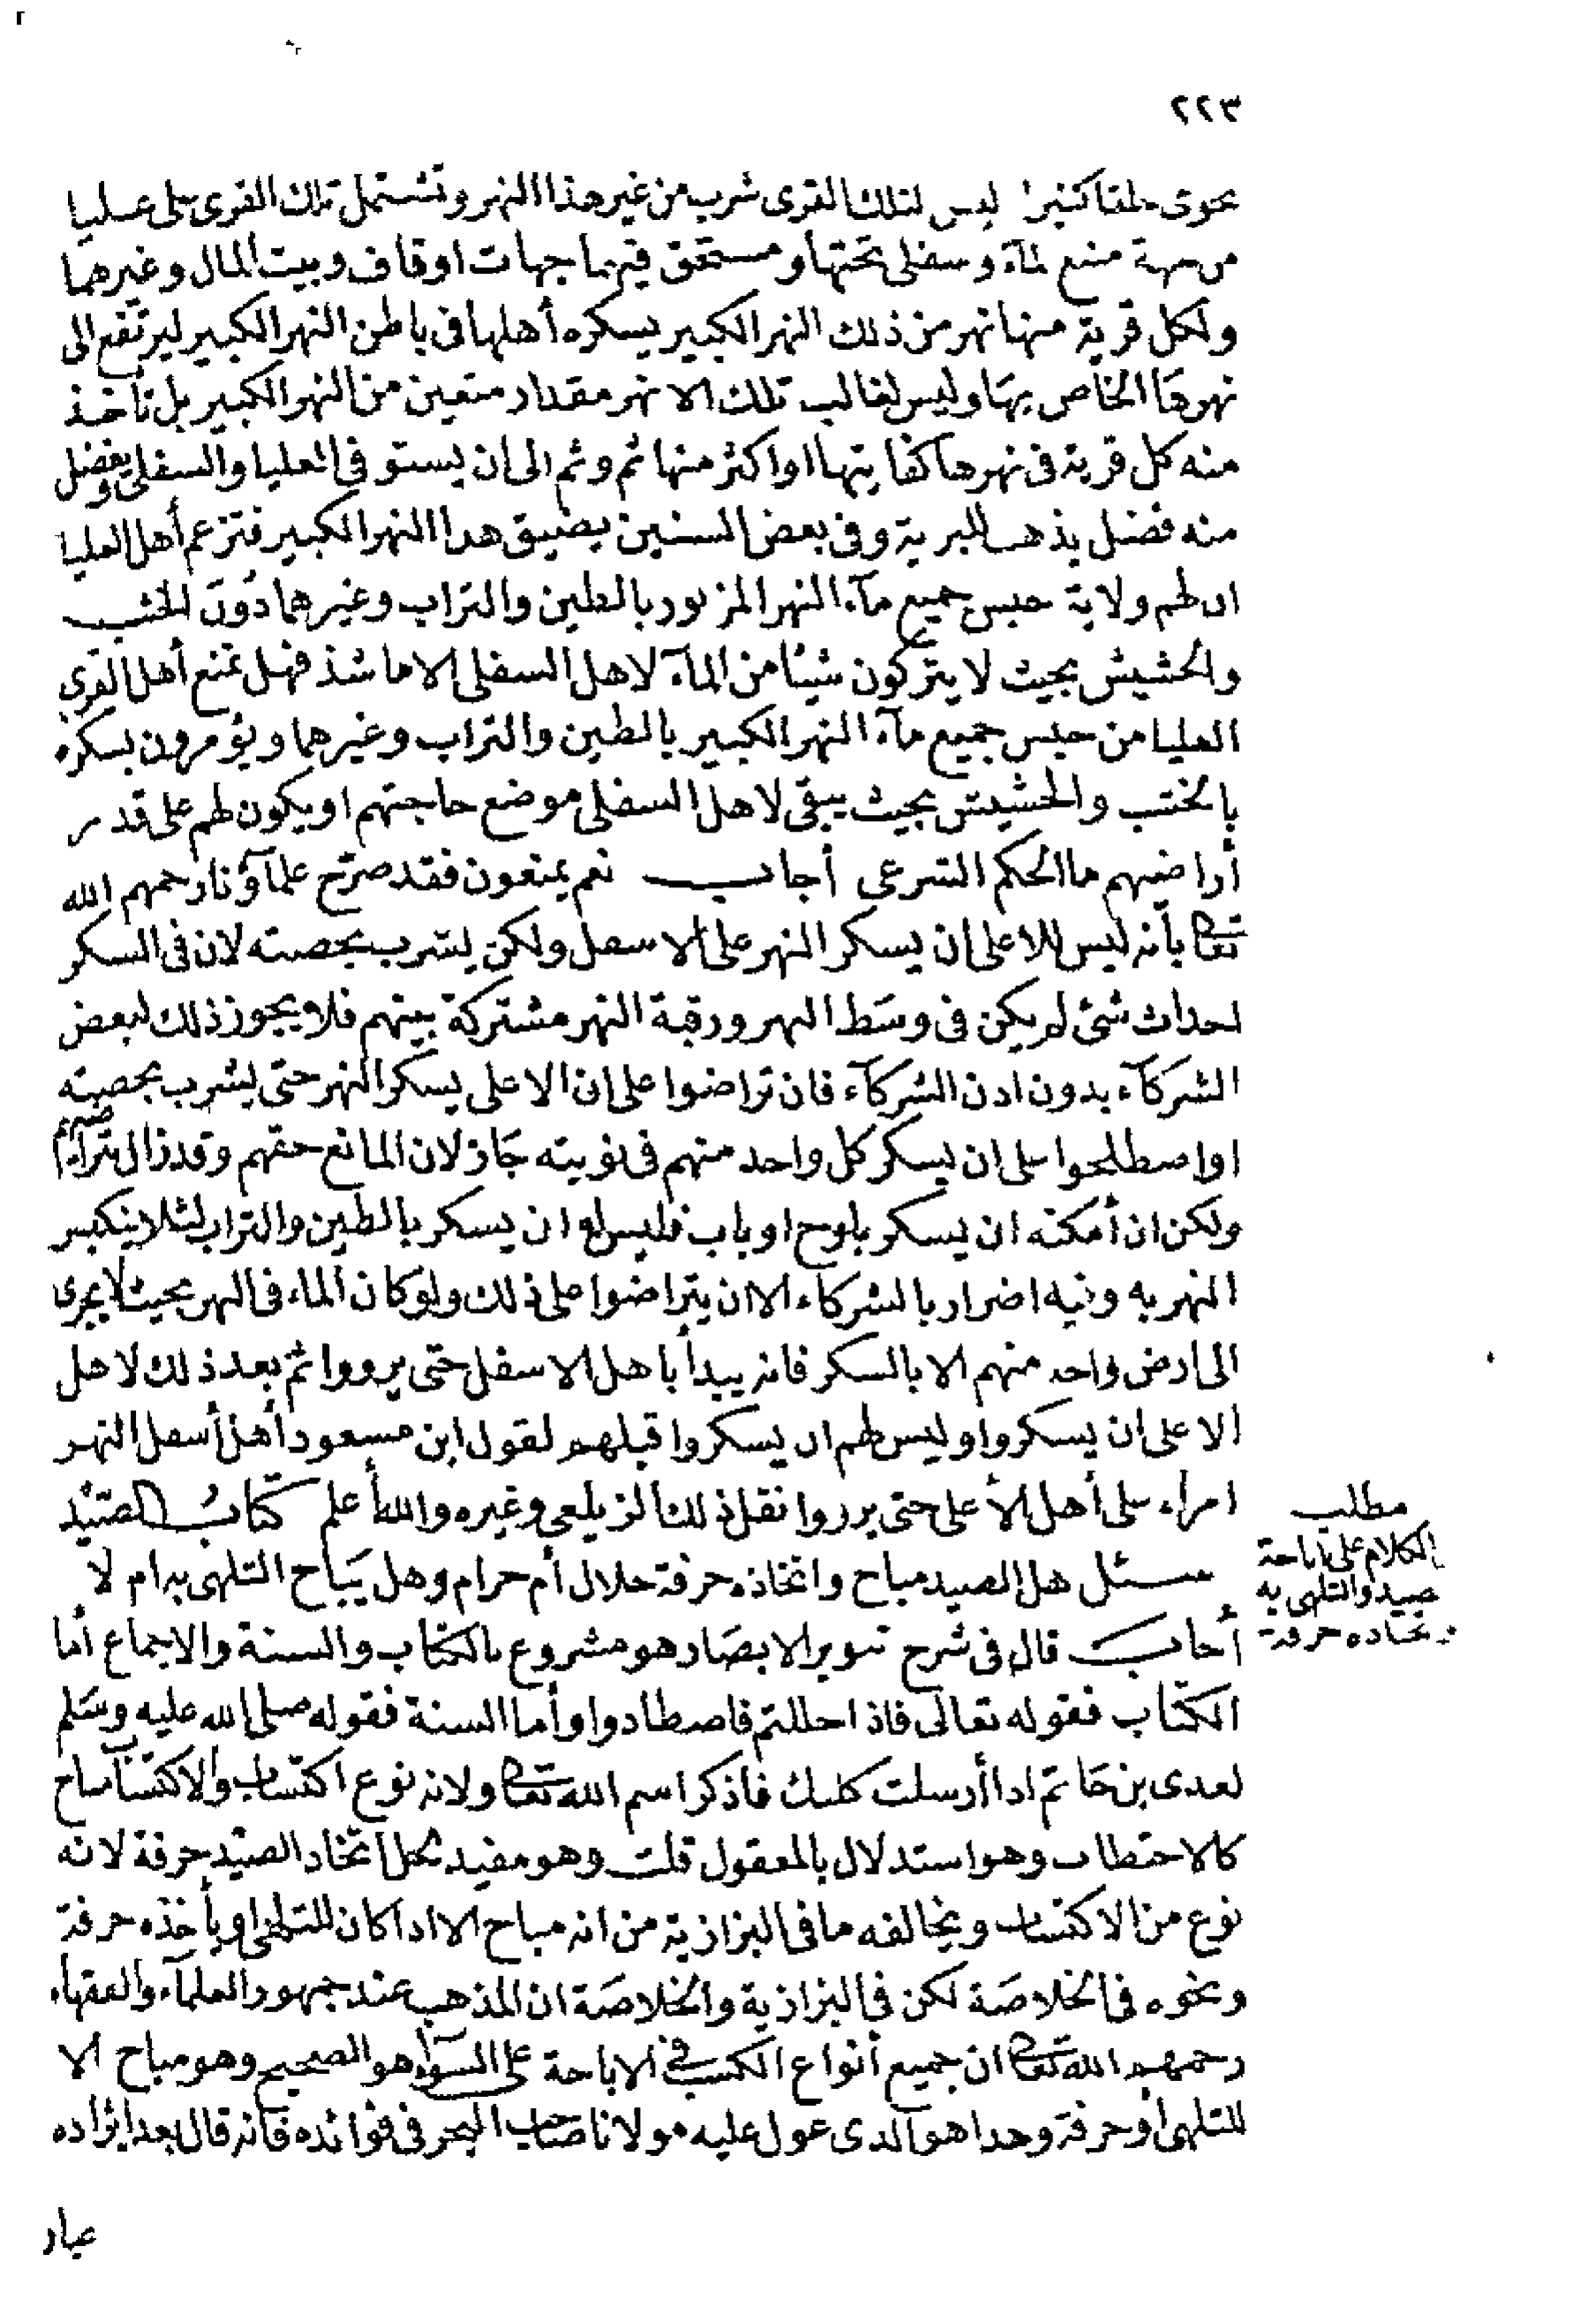 ٢٢٣
تحوى خلقا كثيرا ليس لتلك القرى شرب من غير هذا النهر وتشتمل تلك القرى على عليا
من جهة منبع المآء وسفلى تحتها ومستحق فيهما جهات اوقاف وبيت المال وغيرهما
ولكل قرية منها نهر من ذلك النهر الكبير يسكره أهلها فى باطن النهر الكبير ليرتفع الى
نهرها الخاص بها وليس لغالب تلك الانهر مقدار متعين من النهر الكبير بل تأخذ
منه كل قرية فى نهرها كفايتها او اكثر منها ثم وثم الى ان يستوفى العليا والسفلى ويفضل
منه فضل يذهب للبرية وفى بعض السنين يضيق هذا النهر الكبير فتزعم أهل العليا
ان لهم ولاية حبس جميع مآء النهر المزبور بالطين والتراب وغيرهما دون الخشب
والحشيش بحيث لا يتركون شيئا من المآء لاهل السفلى الا ما شذ فهل تمنع أهل القرى
العليا من حبس جميع مآء النهر الكبير بالطين والتراب وغيرهما ويؤمرون بسكره
بالخشب والحشيش بحيث يبقى لاهل السفلى موضع حاجتهم او يكون لهم على قدر
أراضيهم ما الحكم الشرعى أجاب نعم يمنعون فقد صرّح علمآؤنا رحمهم الله
تعالى بأنه ليس للاعلى ان يسكر النهر على الاسفل ولكن يشرب بحصته لان فى السكر
احداث شئ لم يكن فى وسَط النهر ورقبة النهر مشتركة بينهم فلا يجوز ذلك لبعض
الشركآء بدون اذن الشركآء فان تراضوا على ان الاعلى يسكر النهر حتى يشرب بحصته
او اصطلحوا على ان يسكر كل واحد منهم فى نوبته جَاز لان المانع حقهم وقد زال بتراضيهم
ولكن ان أمكنه ان يسكر بلوح او باب فليس له ان يسكر بالطين والتراب لئلا ينكبس
النهر به وفيه اضرار بالشركاء الا ان يتراضوا على ذلك ولو كان الماء فى النهر بحيث لا يجرى
الى ارض واحد منهم الا بالسكر فانه يبدأ باهل الاسفل حتى يرووا ثم بعد ذلك لاهل
الاعلى ان يسكروا وليس لهم ان يسكروا قبلهم لقول ابن مسعود أهل أسفل النهر
امراء على أهل الأعلى حتى يرووا نقل ذلك الزيلعى وغيره والله أعلم كتابُ الصَيْد
مطلب
الكلام على اباحة
صيد والتلهى به
واتخاذه حرفة
سئل هل الصيد مباح واتخاذه حرفة حلال أم حرام وهل يَباح التلهى به ام لا
أجاب قال فى شرح تنوير الابصَار هو مشروع بالكتاب والسنة والاجماع أما
الكتاب فقوله تعالى فاذا حللتم فاصطادوا وأما السنة فقوله صلى الله عليه وسَلم
لعدى بن حَاتم اذا أرسلت كلبك فاذكر اسم الله تعالى ولانه نوع اكتساب والاكتساب مباح
كالاحتطاب وهو استدلال بالمعقول قلت وهو مفيد لحل اتخاذ الصيْد حرفة لانه
نوع من الاكتساب ويخالفه ما فى البزازية من انه مباح الا اذا كان للتلهى او يأخذه حرفة
ونحوه فى الخلاصَة لكن فى البزازية والخلاصَة ان المذهب عند جمهور العلمآء والفقهاء
رحمهم الله تعالى ان جميع أنواع الكسب فى الاباحة على السوآء هو الصحيح وهو مباح الا
للتلهى أو حرفة وهذا هو الذى عول عليه مولانا صَاحب البحر فى فوائده فانه قال بعد ايراده
عبار